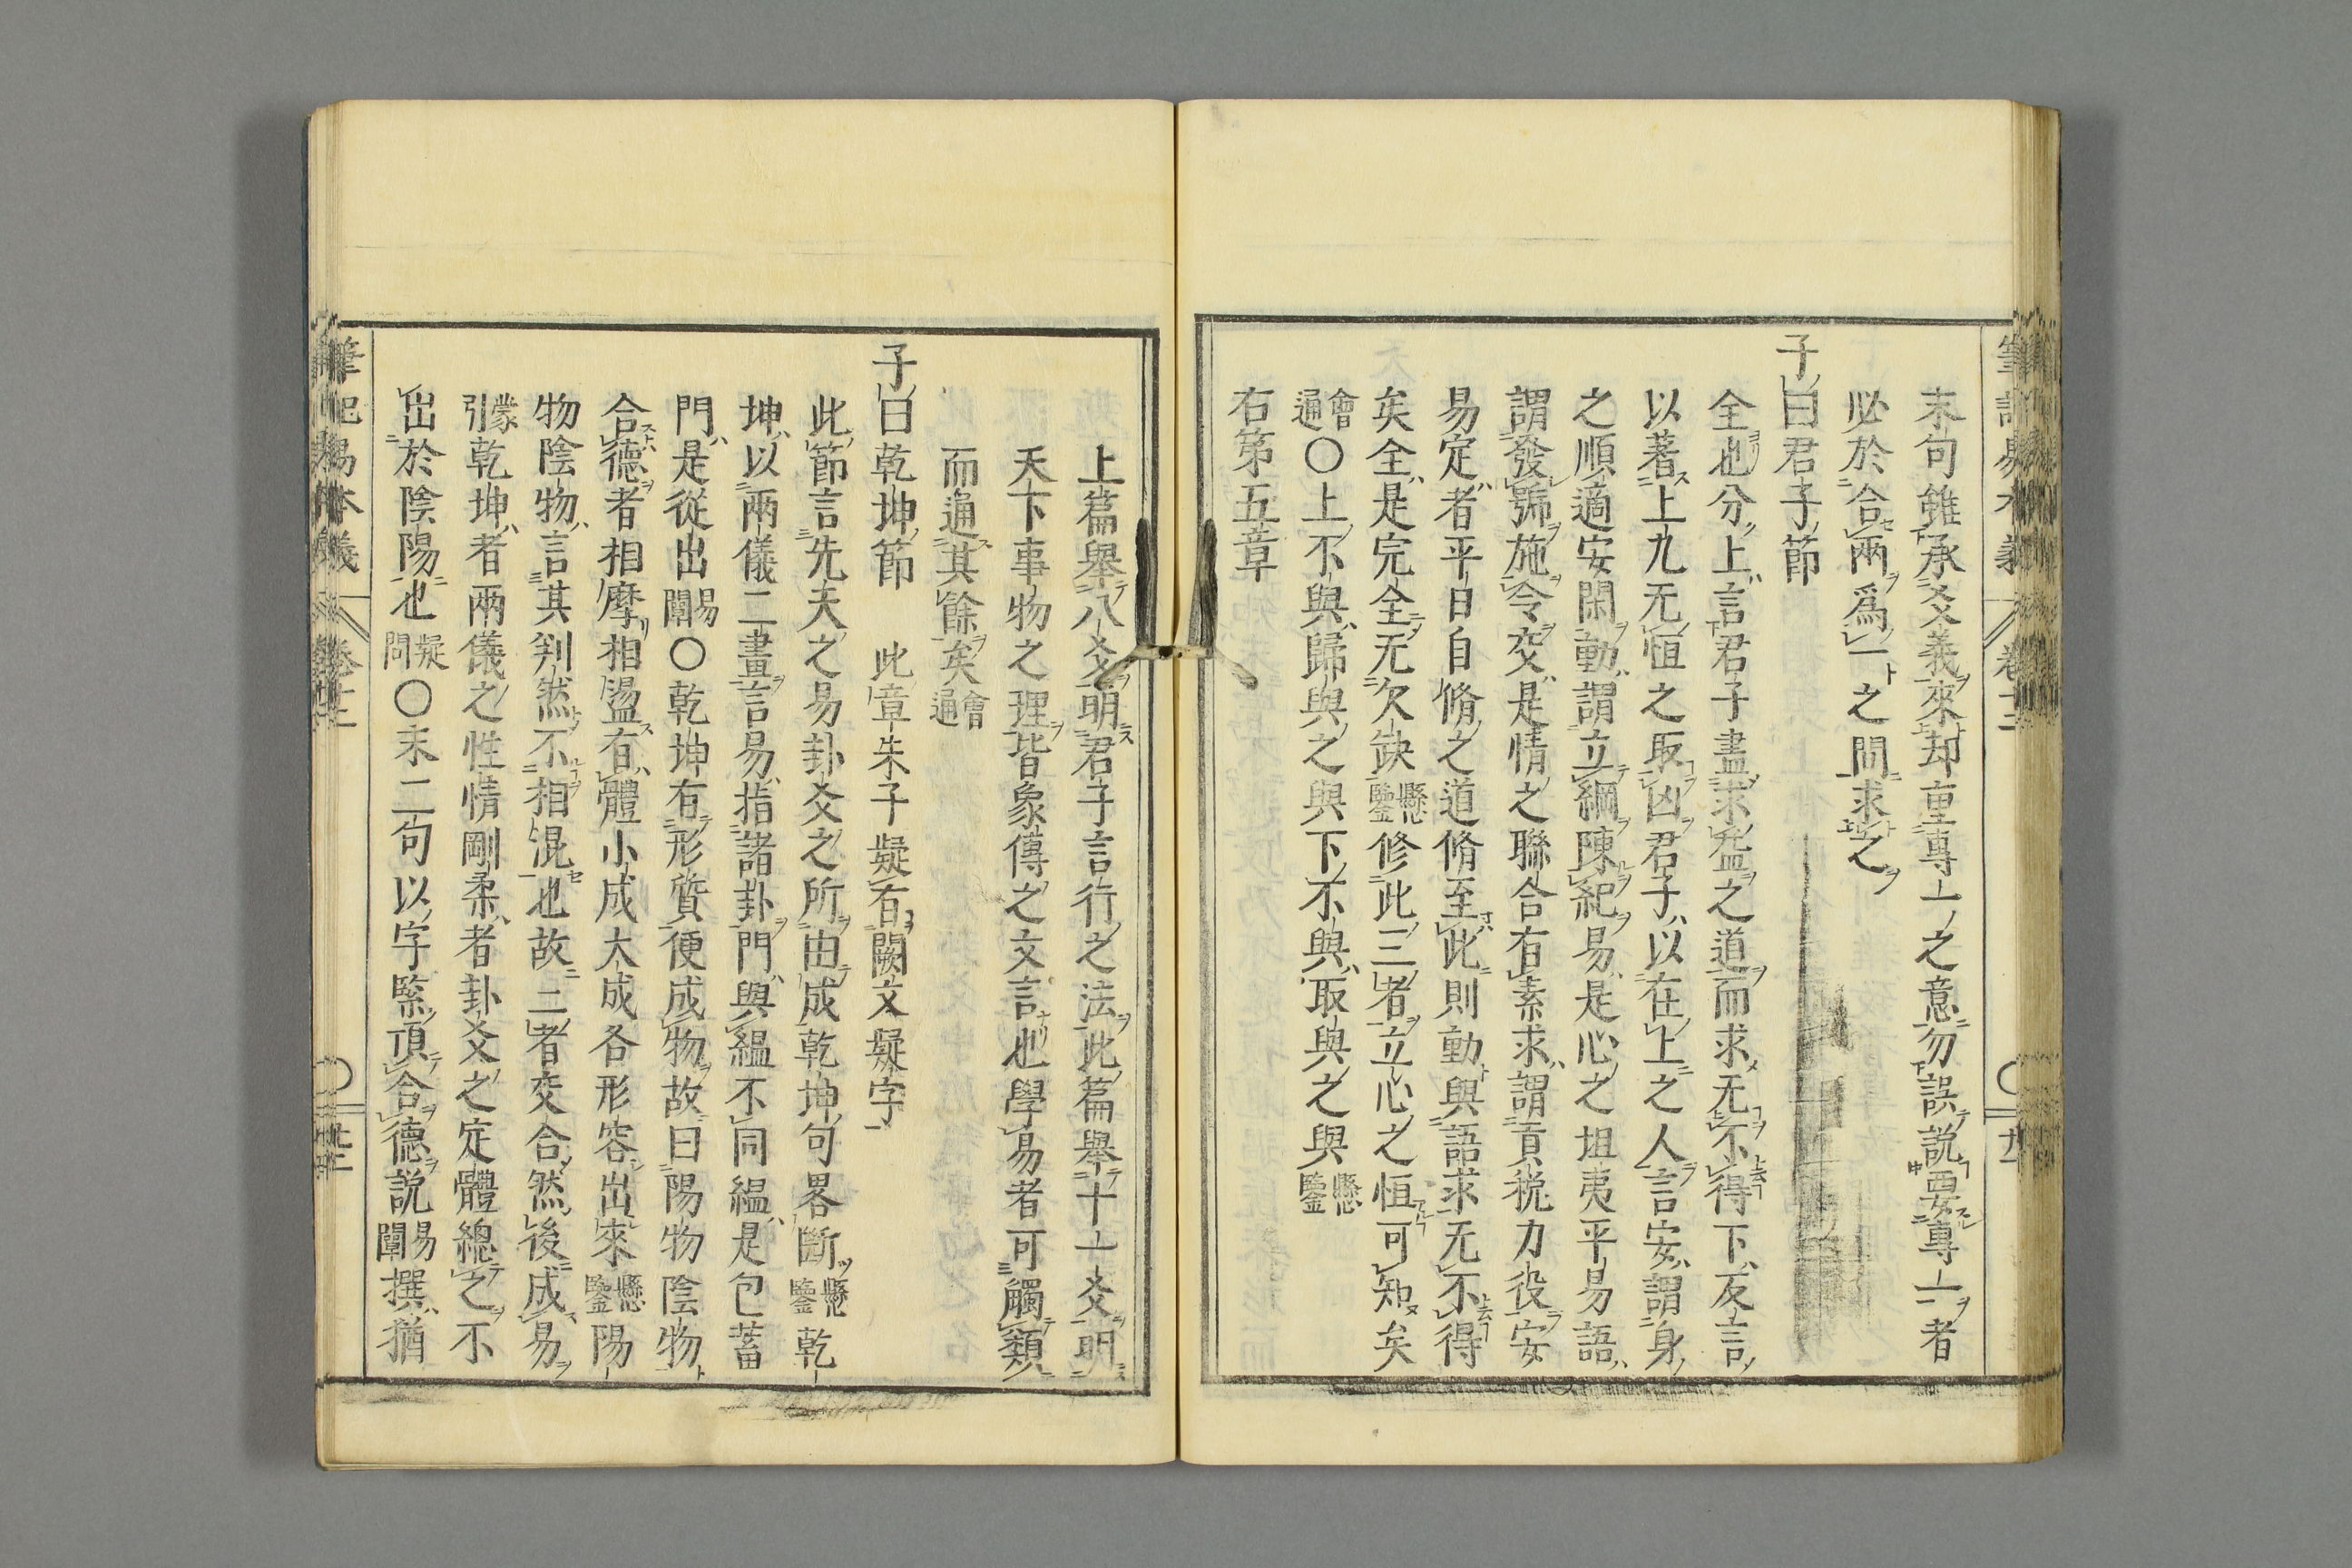 末句雖承爻義來却重專一之意勿誤說要專一者
必於合兩爲一之間求之
子曰君子節
全也分上言君子盡求益之道而求无不得下反言
以著上九无恒之取凶君子以在上之人言安謂身
之順適安閑動謂立綱陳紀易是心之坦夷平易語
謂發號施令交是情之聯合有素求謂貢稅力役安
易定者平日自脩之道脩至此則動與語求无不得
矣全是完全无欠缺懸鑒修此三者立心之恒可知矣
會通○上不與歸與之與下不與取與之與懸鑒
右第五章
上篇舉八爻明君子言行之法此篇舉十一爻明
天下事物之理皆象傳之文言也學易者可觸類
而通其餘矣會通
子曰乾坤節 此章朱子疑有闕文疑字
此節言先天之易卦爻之所由成乾坤句畧斷懸鑒乾
坤以兩儀二畫言易指諸卦門與縕不同縕是包蓄
門是從出易闡○乾坤有形質便成物故曰陽物陰物
合德者相摩相盪有體小成大成各形容出來懸鑒陽
物陰物言其判然不相混也故二者交合然後成易
蒙引乾坤者兩儀之性情剛柔者卦爻之定體總之不
出於陰陽也疑問○末二句以字緊頂合德說易闡撰猶